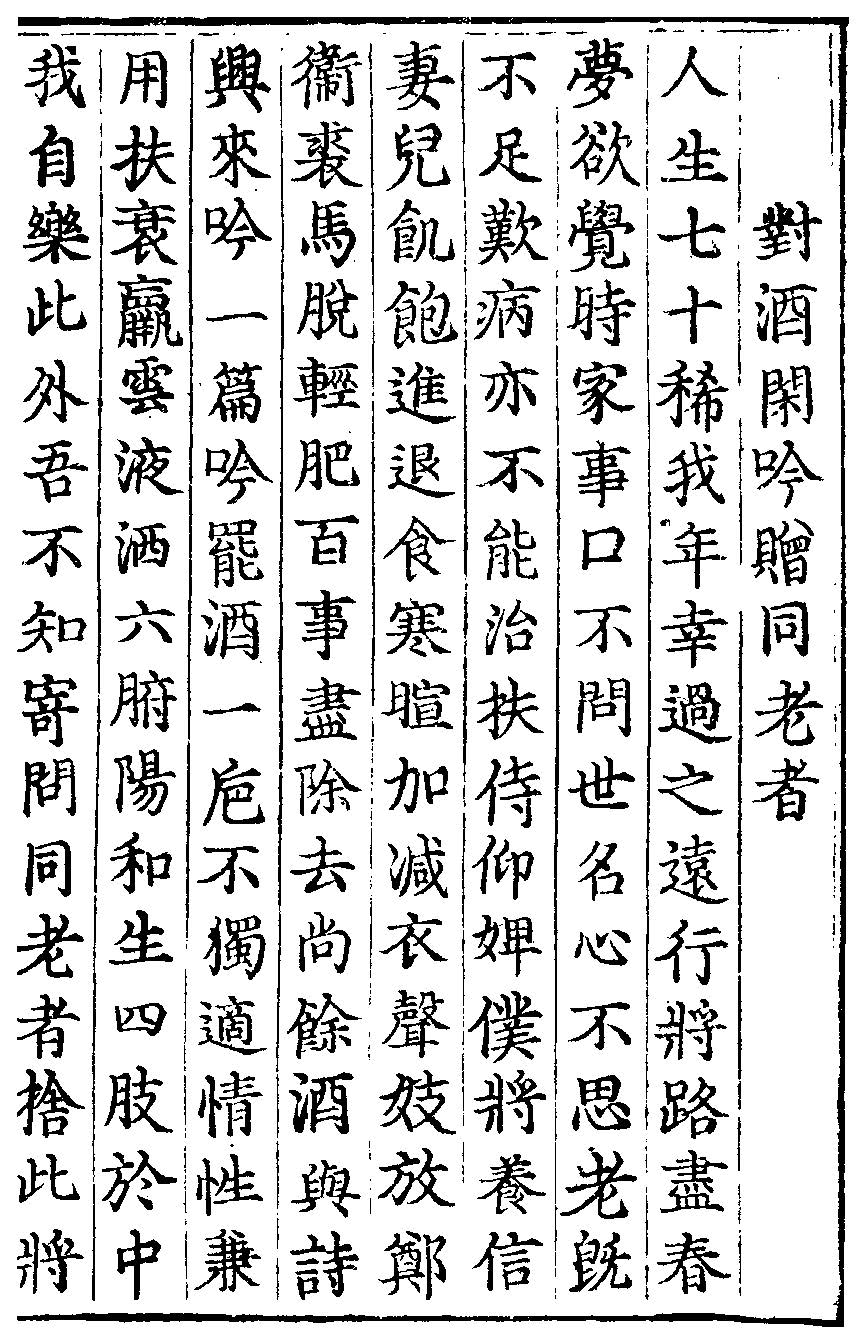 對酒閑吟贈同老者
人生七十稀我年幸過之遠行將路盡春
夢欲覺時家事口不問世名心不思老旣
不足歎病亦不能治扶侍仰婢僕將養信
妻兒飢飽進退食寒暄加減衣聲妓放鄭
衞裘馬脫輕肥百事盡除去尚餘酒與詩
興來吟一篇吟罷酒一巵不獨適情性兼
用扶衰羸雲液洒六腑陽和生四肢於中
我自樂此外吾不知寄問同老者捨此將